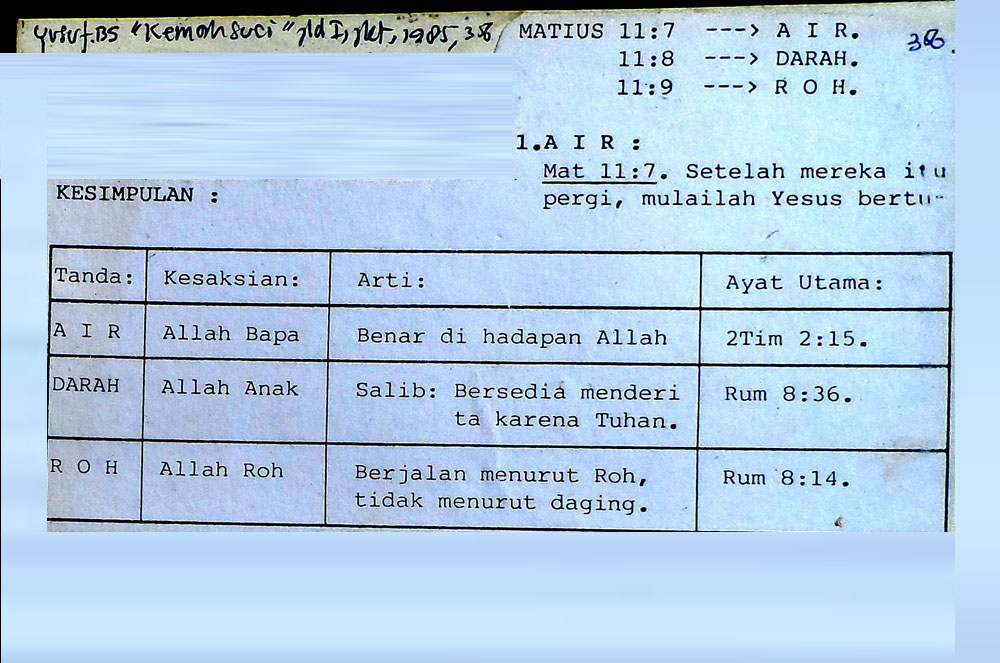 Yusuf.BS "Kemah Suci" jld I, jkt, 1985, 38
MATIUS 11:7 ---> A I R.
11:8 ---> DARAH.
11:9 ---> R O H.
1.A I R :
Mat 11:7. Setelah mereka itu
pergi, mulailah Yesus bertu-
KESIMPULAN :
Tanda: Kesaksian: Arti: Ayat Utama:
A I R Allah Bapa Benar di hadapan Allah 2Tim 2:15.
DARAH Allah Anak Salib: Bersedia menderi Rum 8:36.
ta karena Tuhan.
R O H Allah Roh Berjalan menurut Roh, Rum 8:14.
tidak menurut daging.